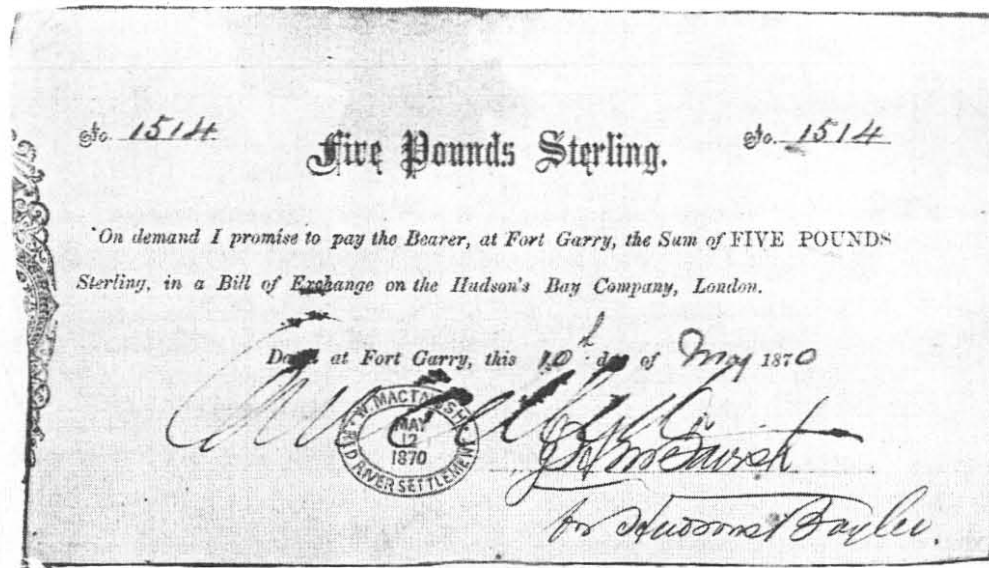 No. 1514 No. 1514
Five Pounds Sterling.
On demand I promise to pay the Bearer, at Fort Garry, the Sum of FIVE POUNDS
Sterling, in a Bill of Exchange on the Hudson's Bay Company, London.
Dated at Fort Garry, this 10 day of May 1870
W. MACTAVISH
MAY
12
1870
RED RIVER SETTLEMENT
for Hudsons Bay Co.